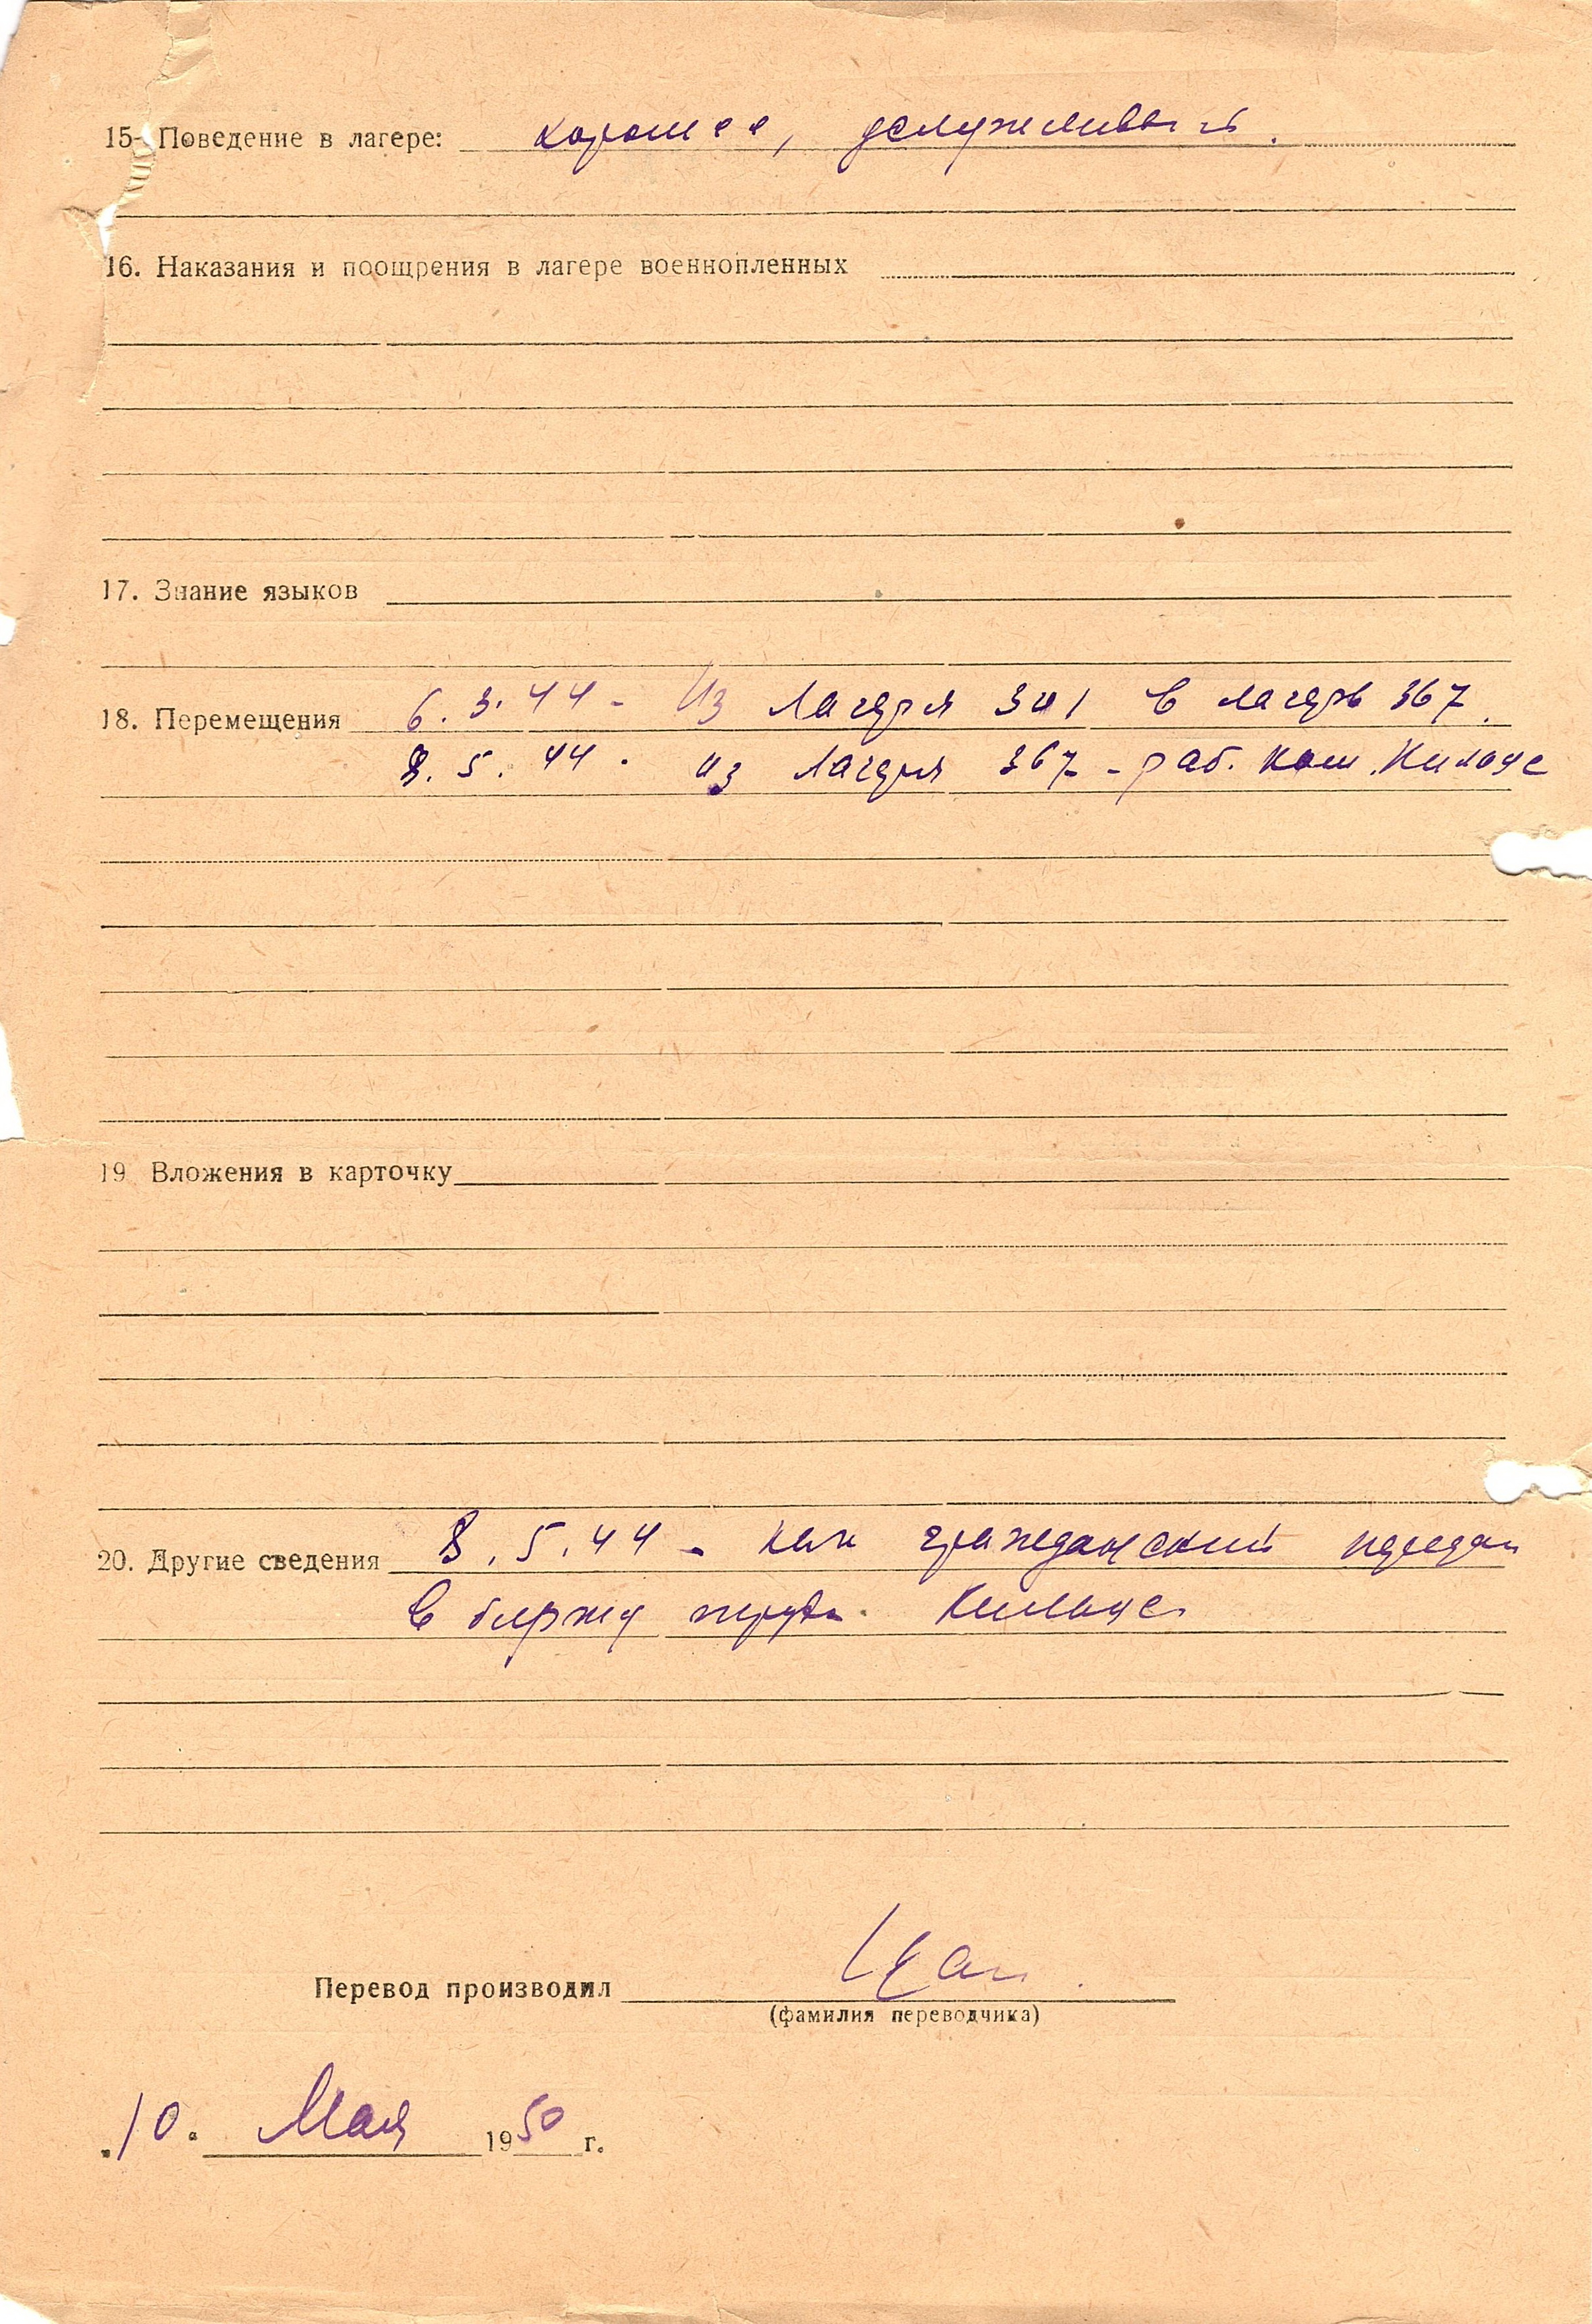 15. Поведение в лагере: хорошее, услужливый.
16. Наказания и поощрения в лагере военнопленных
17. Знание языков
18. Перемещения 6.3.44 - Из Лагеря 3И1 в лагерь 367.
8.5.44 - из Лагеря 367 - раб. ком. Кильце
19 Вложения в карточку
20. Другие сведения 8.5.44 - как гражданский передан
в биржу труда. Кильце
Перевод производил
(фамилия переводчика)
"10" Мая 1950 г.